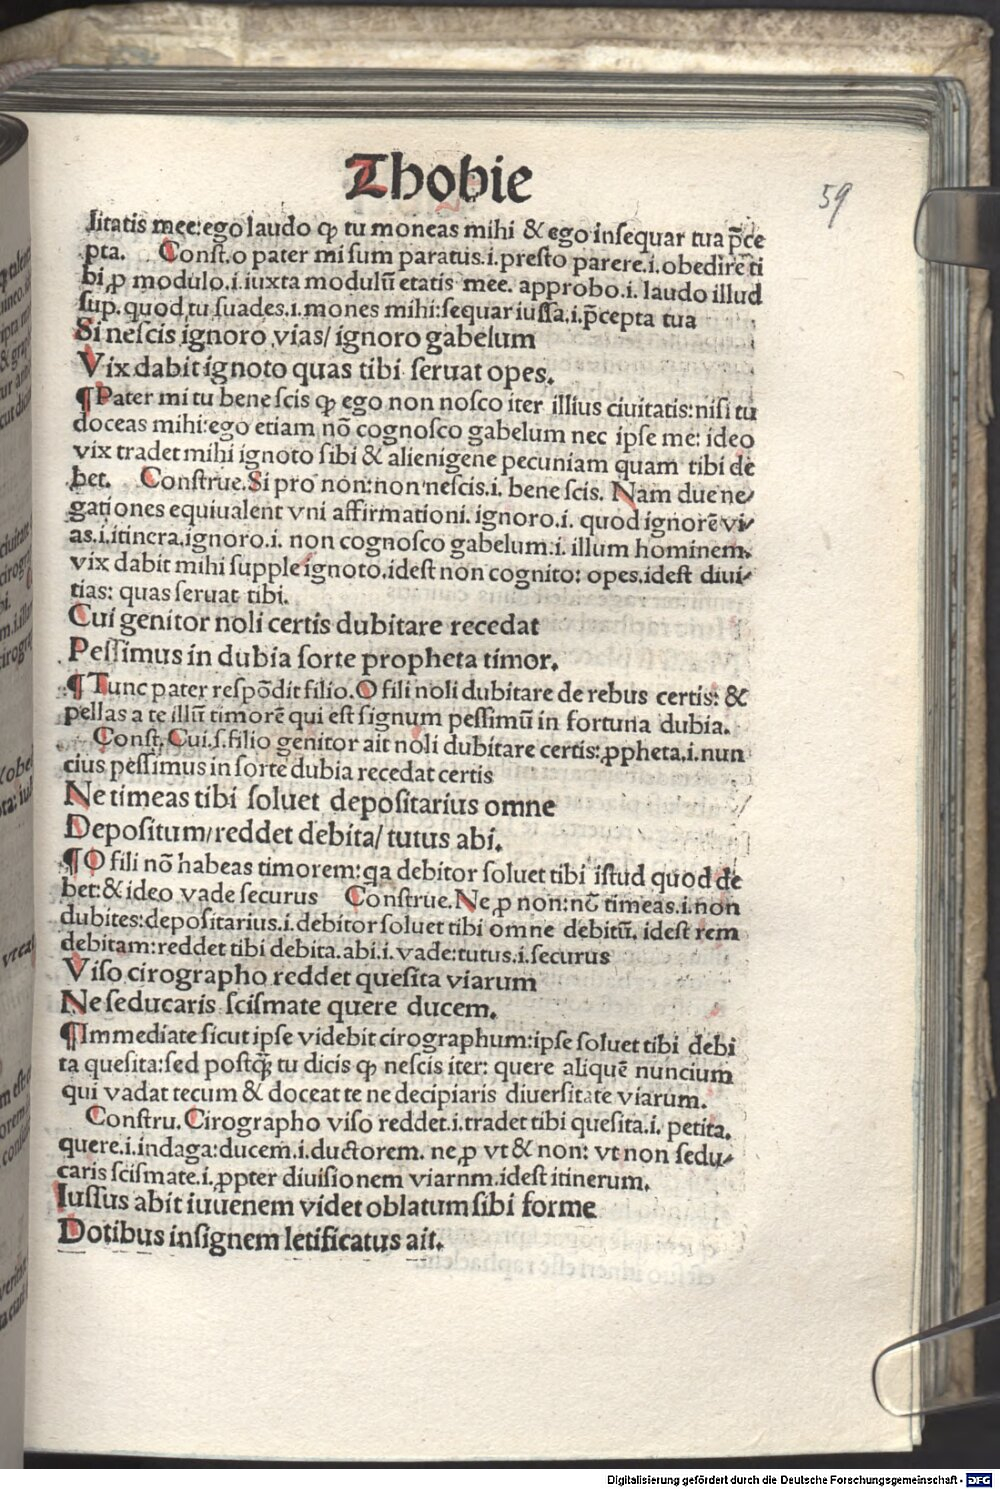 Thobie
59
litatis mee:ego laudo ꝙ tu moneas mihi & ego insequar tua p̄ce
pta. Const.o pater mi sum paratus.i.presto parere.i.obedire ti
bi,ꝓ modulo.i.iuxta modulū etatis mee. approbo.i. laudo illud
sup. quod tu suades.i.mones mihi:sequar iussa.i.p̄cepta tua
Si nescis ignoro vias/ ignoro gabelum
Vix dabit ignoto quas tibi seruat opes.
¶Pater mi tu bene scis ꝙ ego non nosco iter illius ciuitatis:nisi tu
doceas mihi:ego etiam nō cognosco gabelum nec ipse me: ideo
vix tradet mihi ignoto sibi & alienigene pecuniam quam tibi de
bet. Construe.Si pro non:non nescis.i. bene scis. Nam due ne/
gationes equiualent vni affirmationi. ignoro.i. quod ignorē vi/
as.i.itinera.ignoro.i. non cognosco gabelum.i. illum hominem.
vix dabit mihi supple ignoto.idest non cognito: opes.idest diui/
tias: quas seruat tibi.
Cui genitor noli certis dubitare recedat
Pessimus in dubia sorte propheta timor.
¶Tunc pater respōdit filio.O fili noli dubitare de rebus certis: &
pellas a te illū timorē qui est signum pessimū in fortuna dubia.
Const.Cui.s.filio genitor ait noli dubitare certis:ꝓpheta.i.nun
cius pessimus in sorte dubia recedat certis
Ne timeas tibi soluet depositarius omne
Depositum/reddet debita/tutus abi.
¶O fili nō habeas timorem:qa debitor soluet tibi istud quod de
bet:& ideo vade securus Construe.Ne,ꝓ non:nō timeas.i.non
dubites:depositarius.i.debitor soluet tibi omne debitū. idest rem
debitam:reddet tibi debita.abi.i. vade:tutus.i.securus
Viso cirographo reddet quesita viarum
Ne seducaris scismate quere ducem.
¶Immediate sicut ipse videbit cirographum:ipse soluet tibi debi
ta quesita:sed postꝙ̄ tu dicis ꝙ nescis iter: quere aliquē nuncium
qui vadat tecum & doceat te ne decipiaris diuersitate viarum.
Constru.Cirographo viso reddet.i.tradet tibi quesita.i. petita.
quere.i.indaga:ducem.i.ductorem. ne ꝓ vt & non: vt non sedu/
caris scismate.i.ꝓpter diuisionem viarnm.idest itinerum.
Iussus abit iuuenem videt oblatum sibi forme
Dotibus insignem letificatus ait.
Digitalisierung gefördert durch die Deutsche Forschungsgemeinschaft - DFG